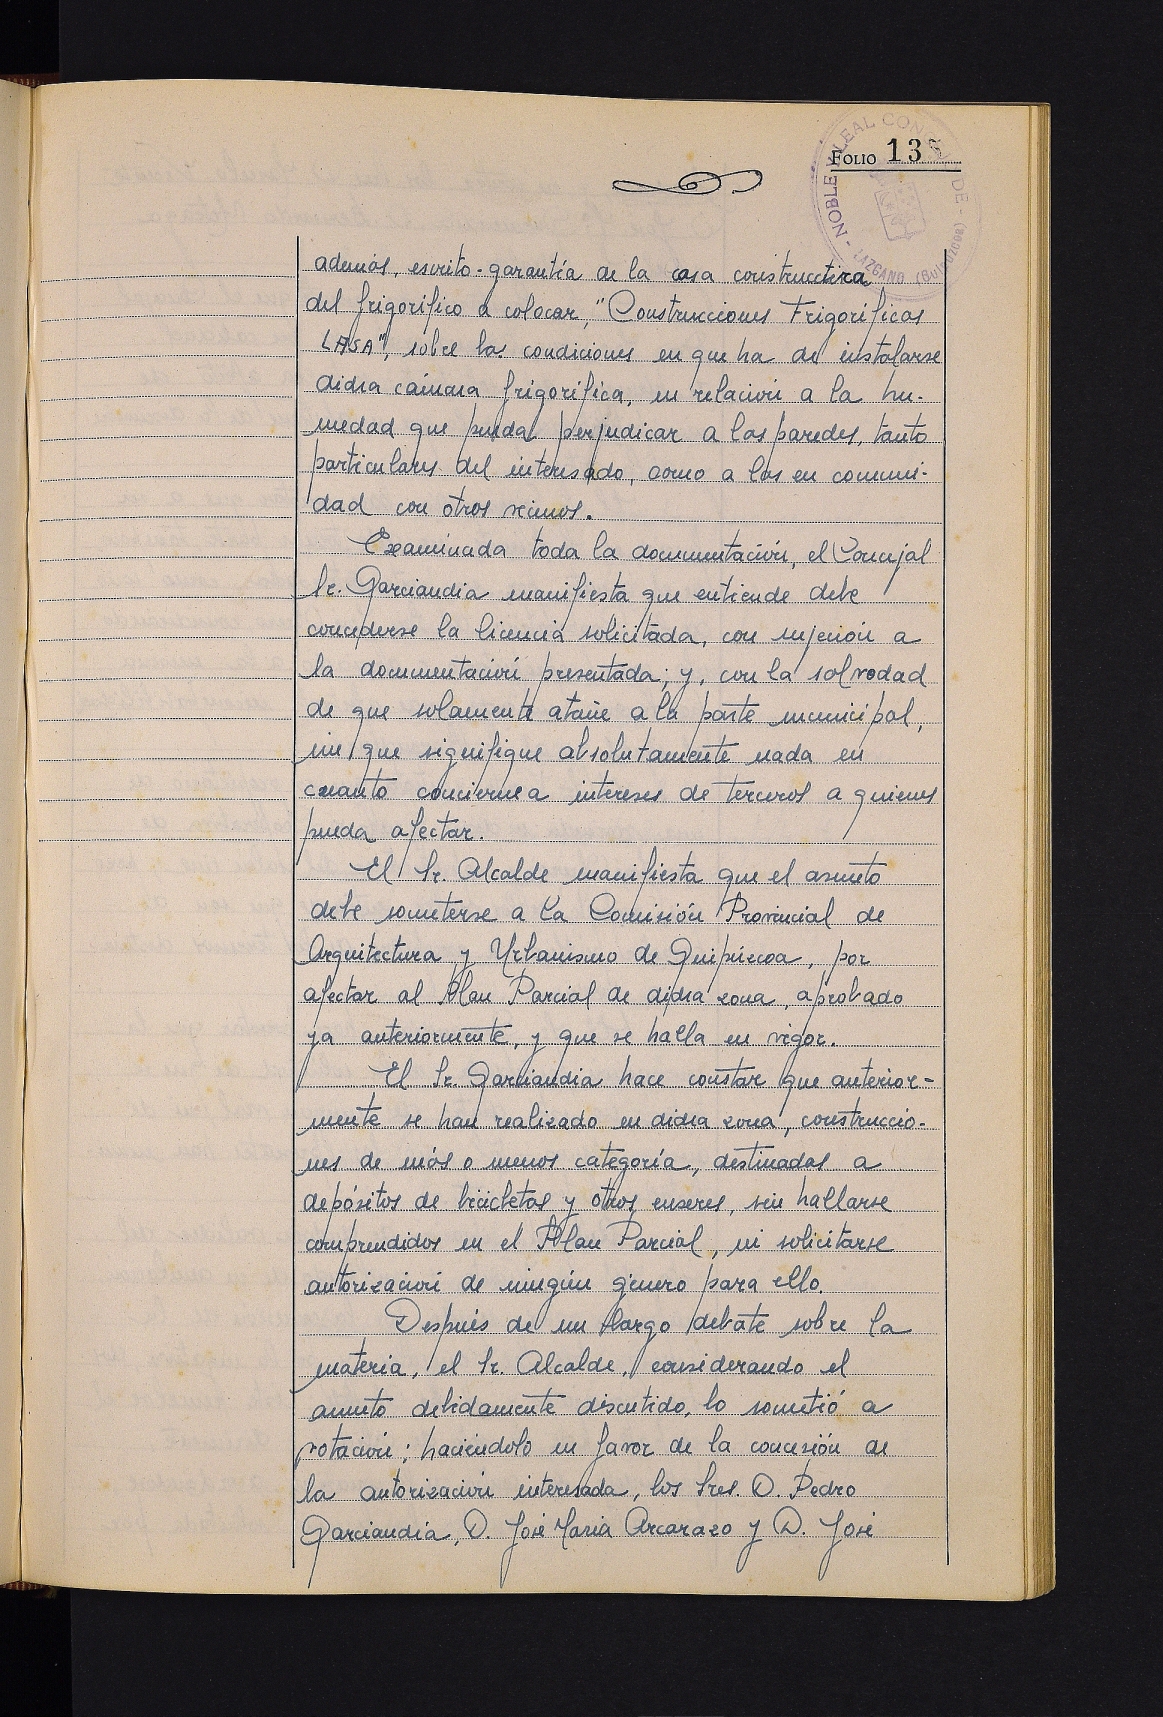 FOLIO 138
NOBLE Y LEAL CONCEJO DE - LAZCANO (GUIPUZCOA) -
además, escrito-garantía de la casa constructora
del frigorífico a colocar, "Construcciones Frigoríficas
LASA", sobre las condiciones en que ha de instalarse
dicha cámara frigorífica, en relación a la hu-
medad que pueda perjudicar a las paredes, tanto
particulares del interesado, como a las en comuni-
dad con otros vecinos.
Examinada toda la documentación, el Concejal
Sr. Garciandia manifiesta que entiende debe
concederse la licencia solicitada, con sujeción a
la documentación presentada; y, con la salvedad
de que solamente atañe a la parte municipal,
sin que signifique absolutamente nada en
cuanto concierne a intereses de terceros a quienes
pueda afectar.
El Sr. Alcalde manifiesta que el asunto
debe someterse a la Comisión Provincial de
Arquitectura y Urbanismo de Guipúzcoa, por
afectar al Plan Parcial de dicha zona, aprobado
ya anteriormente, y que se halla en vigor.
El Sr. Garciandia hace constar que anterior-
mente se han realizado en dicha zona, construccio-
nes de más o menos categoría, destinadas a
depósitos de bicicletas y otros enseres, sin hallarse
comprendidos en el Plan Parcial, ni solicitarse
autorización de ningún género para ello.
Después de un largo debate sobre la
materia, el Sr. Alcalde, considerando el
asunto debidamente discutido, lo sometió a
votación; haciéndolo en favor de la concesión de
la autorización interesada, los Sres. D. Pedro
Garciandia, D. José Maria Arcarazo y D. José